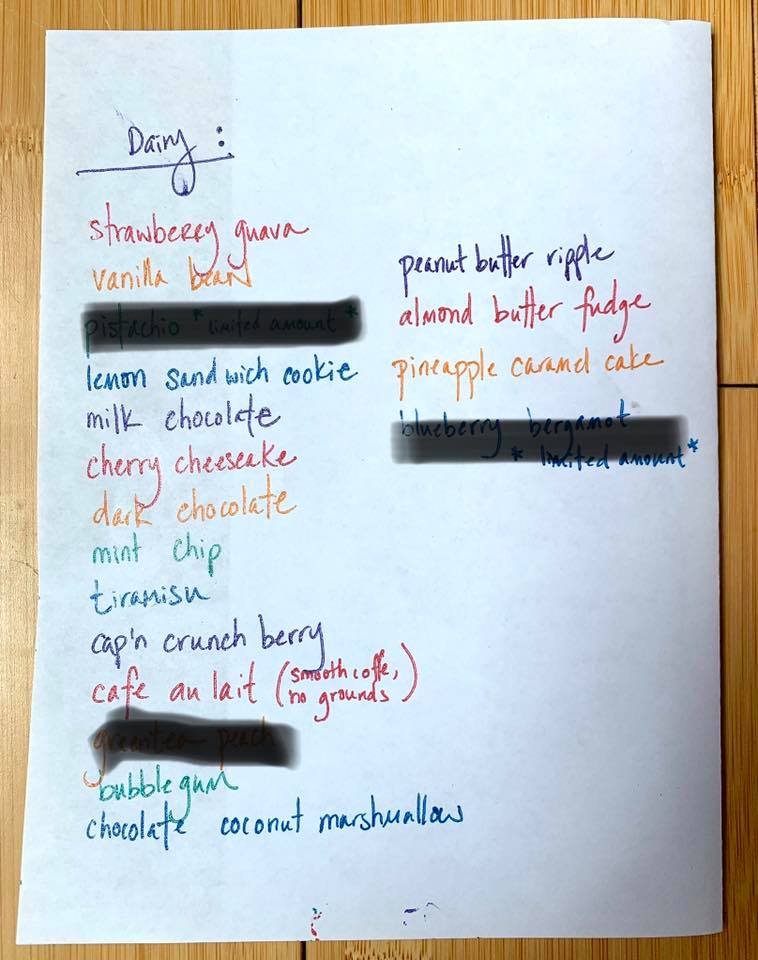 Dairy :
strawberry guava
vanilla bean
pistachio *limited amount*
lemon sandwich cookie
milk chocolate
cherry cheeseake
dark chocolate
mint chip
tiramisu
cap'n crunch berry
cafe au lait (smooth coffe,
no grounds)
greentea peach
bubblegum
chocolate coconut marshmallow
peanut butter ripple
almond butter fudge
pineapple caramel cake
blueberry bergamot
*limited amount*